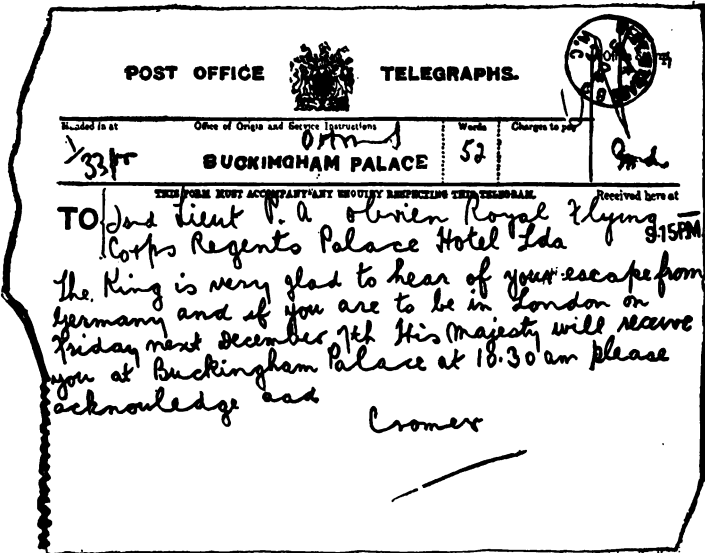 POST OFFICE TELEGRAPHS.
Handed in at Office of Origin and Service Instructions Words Charges to pay
52
BUCKINGHAM PALACE
THIS FORM MUST ACCOMPANY ANY ENQUIRY RESPECTING THIS TELEGRAM. Received here at
TO 2nd Lieut P. A Obrien Royal Flying
9.15PM
Corps Regents Palace Hotel Lda
The King is very glad to hear of your escape from
Germany and if you are to be in London on
Friday next December 7th His Majesty will receive
you at Buckingham Palace at 10.30 am please
acknowledge aad
Cromer